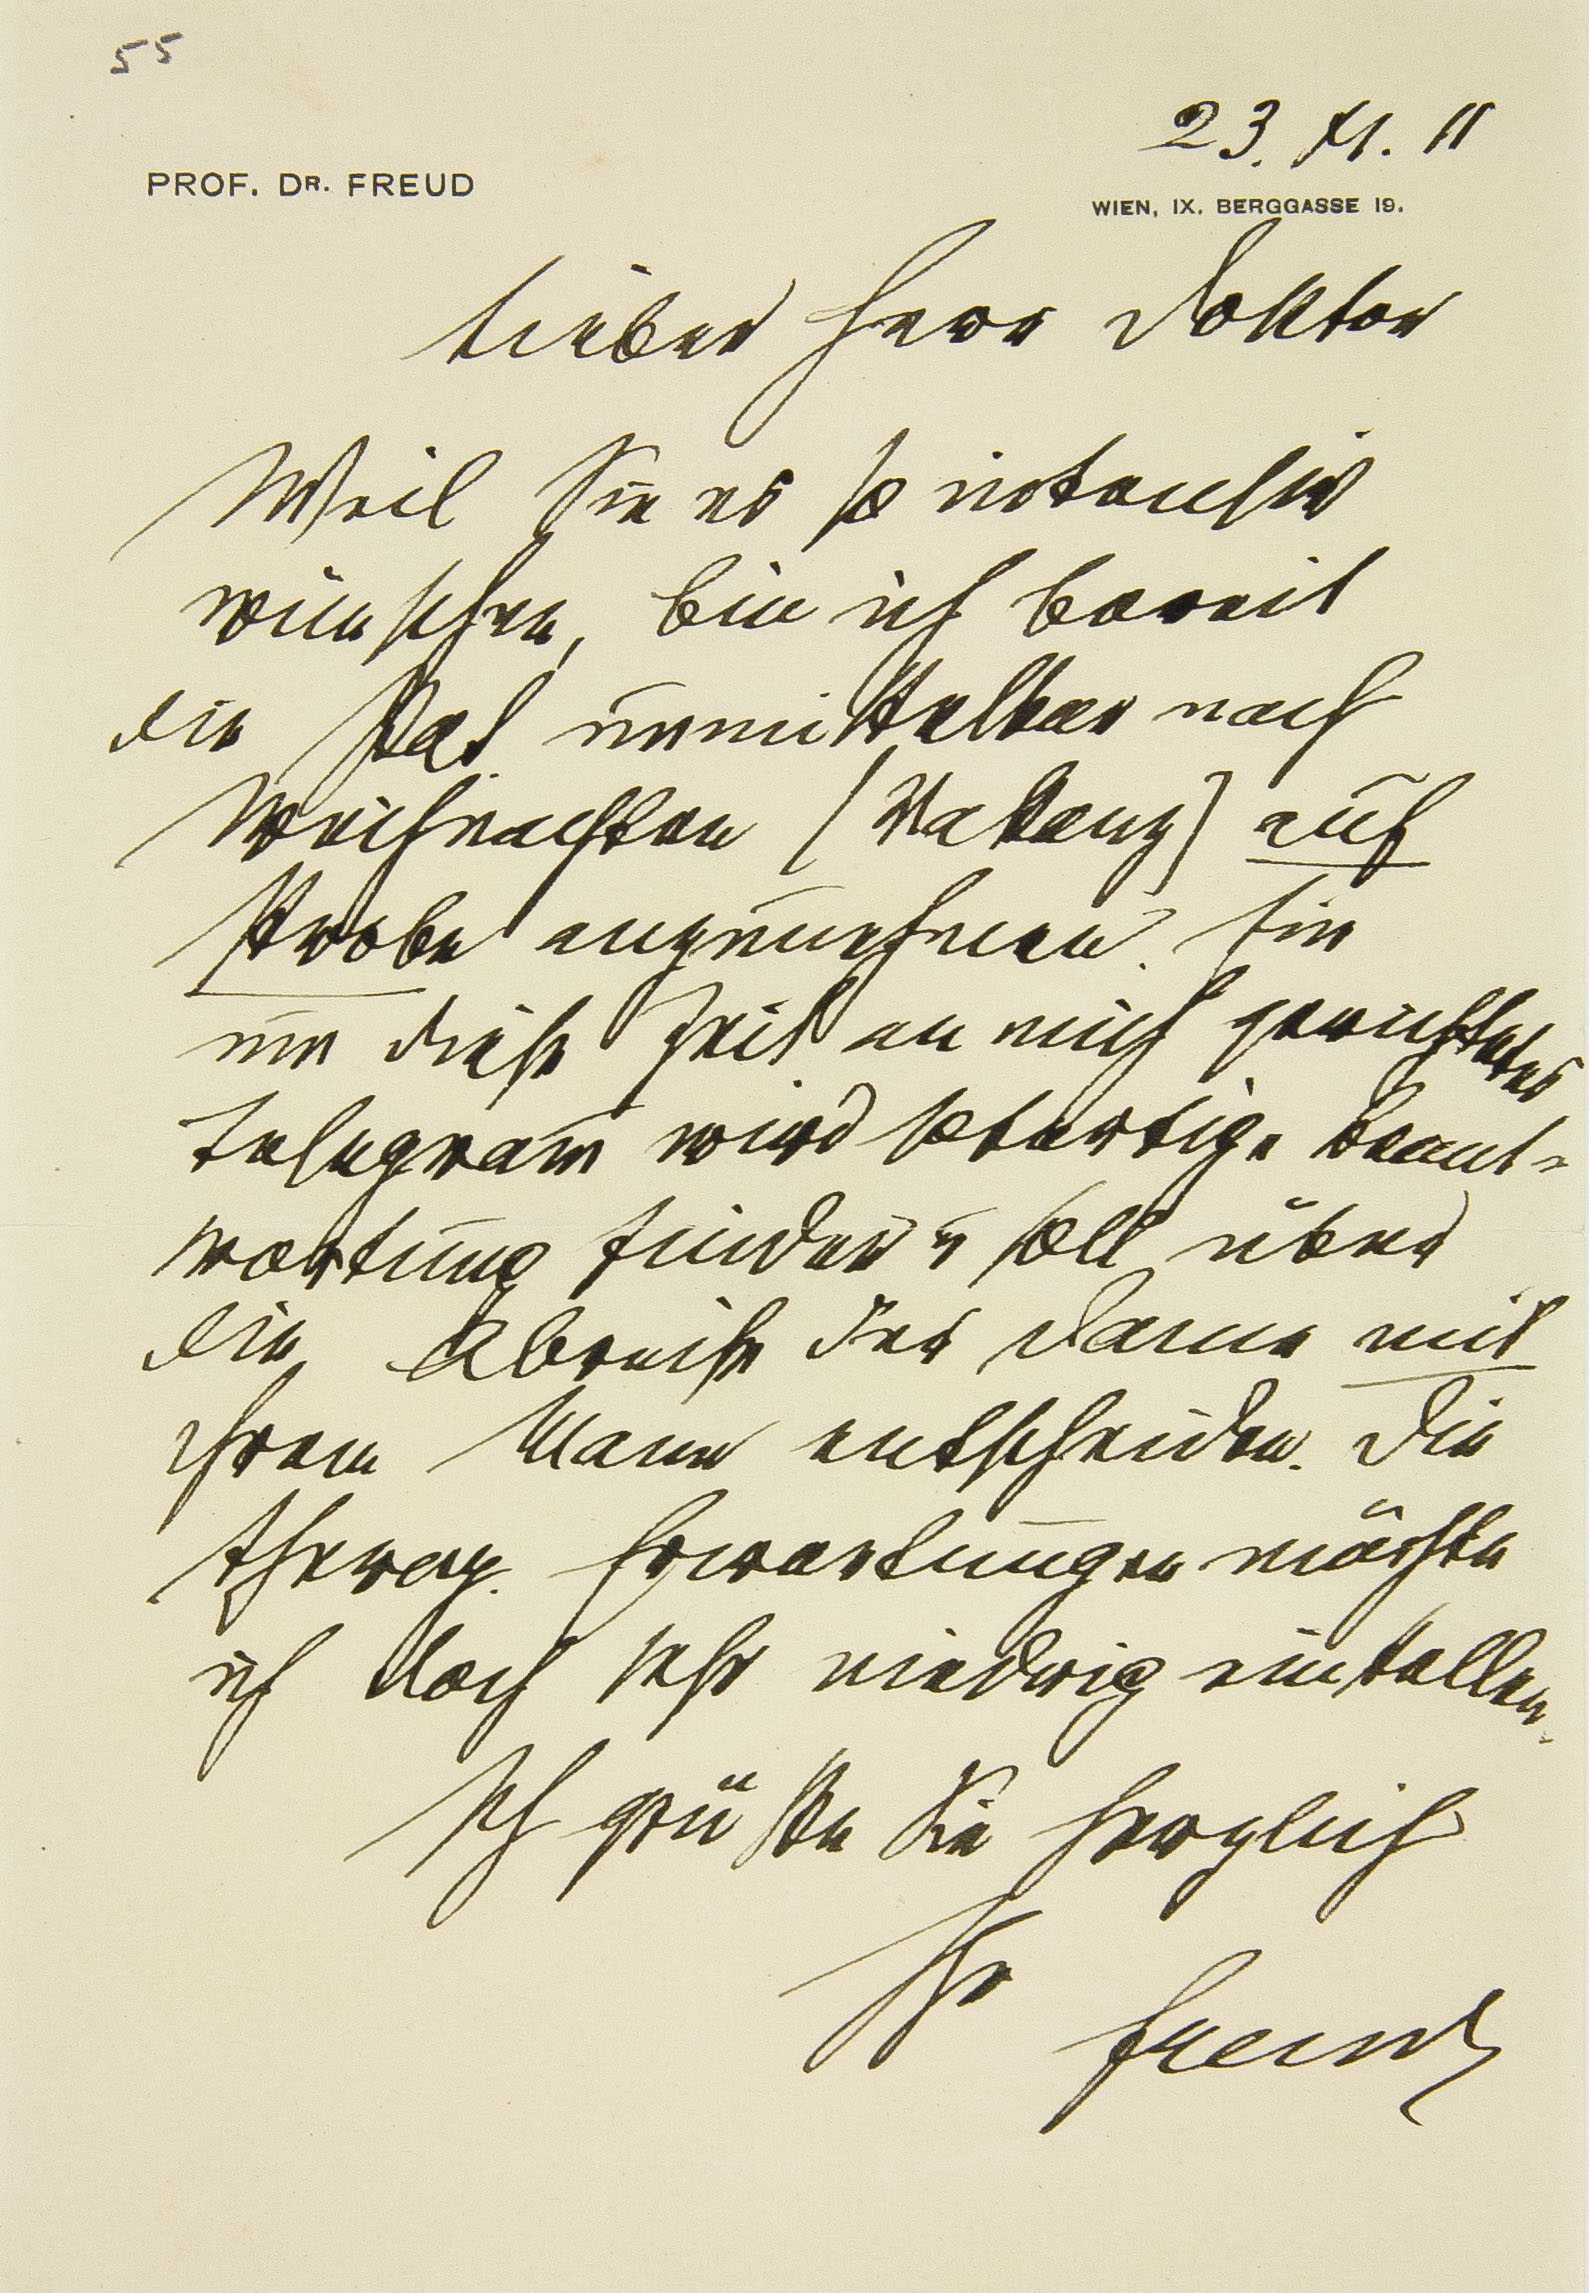 55
23. XI. 11
PROF. DR. FREUD
WIEN, IX. BERGGASSE 19.
Lieber Herr Doktor
Weil Sie es so intensiv
wünschen, bin ich bereit
die Pat unmittelbar nach
Weihnachten (Vakanz) auf
Probe anzunehmen. Ein
um diese Zeit an mich gerichtetes
Telegram̄ wird sofortige Beant-
wortung finden u soll über
die Abreise der Dame mit
ihrem Mann entscheiden. Die
therap. Erwartungen möchte
ich doch sehr niedrig einstellen.
Ich grüße Sie herzlich
Ihr
Freud